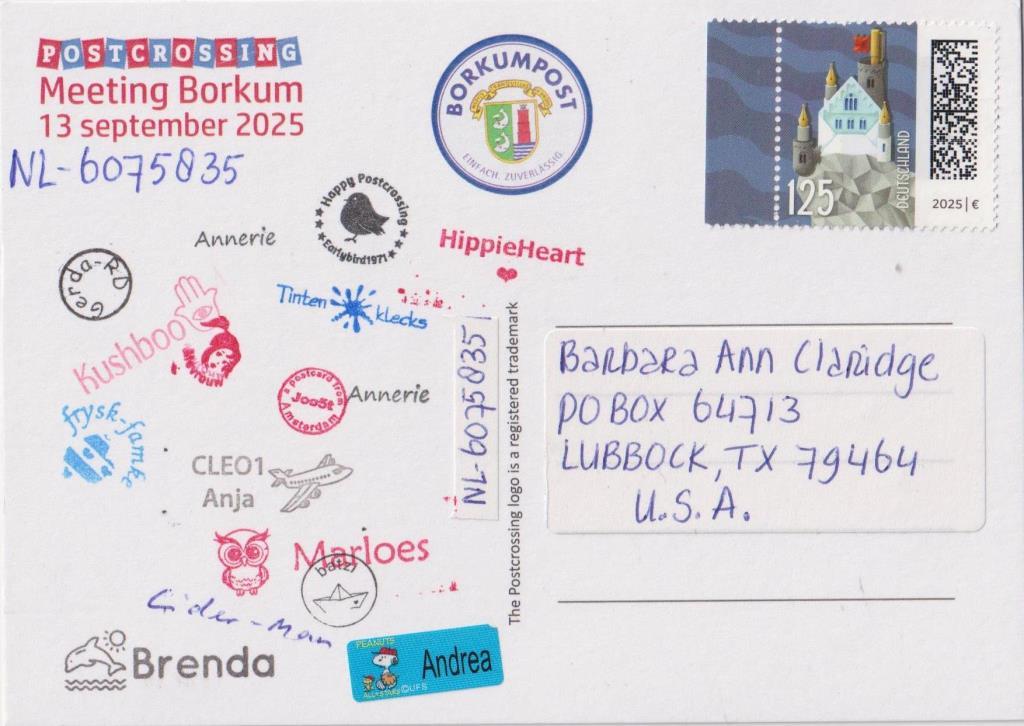 POSTCROSSING
Meeting Borkum
13 september 2025
NL-6075835
BORKUMPOST
EINFACH. ZUVERLÄSSIG.
125
DEUTSCHLAND
2025|€
Happy Postcrossing
Earlybird1971
Annerie
HippieHeart
Gerda-RD
Tinten
klecks
Kushboo
a postcard from
Joo5t
Amsterdam
Annerie
frysk-famke
CLEO1
Anja
NL-6075835
The Postcrossing logo is a registered trademark
Barbara Ann Claridge
PO BOX 64713
LUBBOCK, TX 79464
U.S.A.
Marloes
batzi
Cider-Man
Brenda
PEANUTS
Andrea
ALL★STARS ©UFS